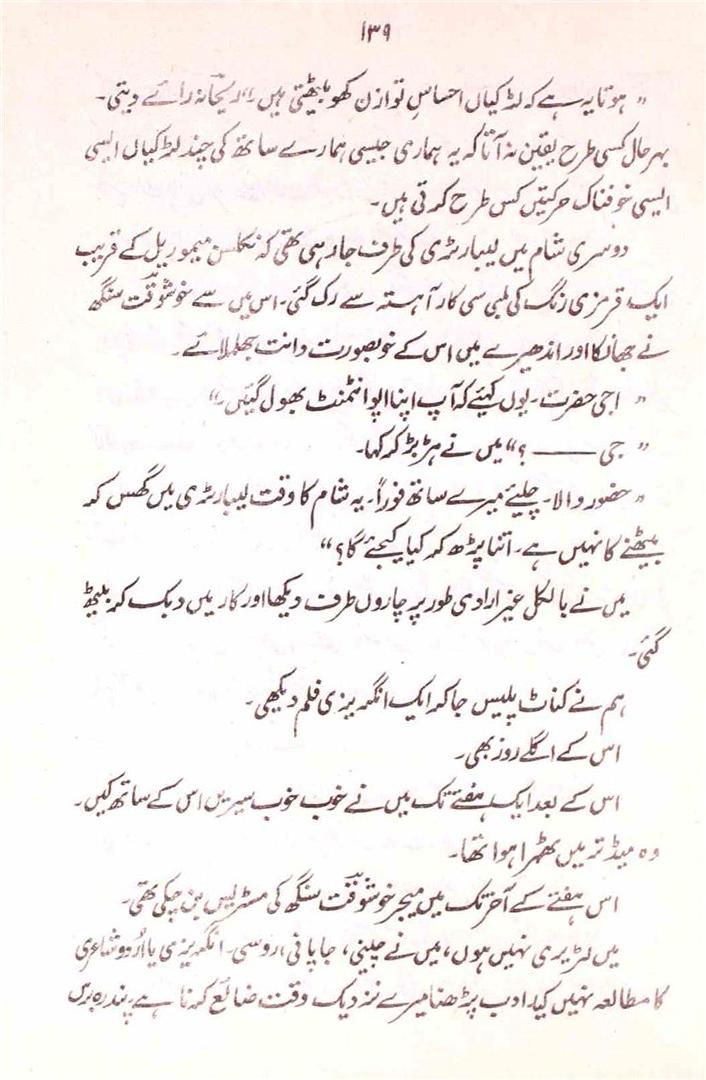 ۱۳۹
" ہوتا یہ ہے کہ لڑکیاں احساسِ توازن کھو بیٹھتی ہیں۔" ریحانہ رائے دیتی۔
بہرحال کسی طرح یقین نہ آتا کہ یہ ہماری جیسی ہمارے ساتھ کی چند لڑکیاں ایسی
ایسی خوفناک حرکتیں کس طرح کرتی ہیں۔
دوسری شام میں لیبارٹری کی طرف جا رہی تھی کہ نکلسن میموریل کے قریب
ایک قرمزی رنگ کی لمبی سی کار آہستہ سے رک گئی۔ اس میں سے خوشوقت سنگھ
نے جھانکا اور اندھیرے میں اس کے خوبصورت دانت جھلملائے۔
" اجی حضرت۔ یوں کہیئے کہ آپ اپنا اپوائنٹمنٹ بھول گئیں۔"
" جی ——— ؟" میں نے ہڑبڑ کر کہا۔
" حضور والا۔ چلیئے میرے ساتھ فوراً۔ یہ شام کا وقت لیبارٹری میں گھس کر
بیٹھنے کا نہیں ہے۔ اتنا پڑھ کر کیا کیجئے گا؟"
میں نے بالکل غیر ارادی طور پر چاروں طرف دیکھا اور کار میں دبک کر بیٹھ
گئی۔
ہم نے کناٹ پلیس جا کر ایک انگریزی فلم دیکھی۔
اس کے اگلے روز بھی۔
اس کے بعد ایک ہفتے تک میں نے خوب خوب سیریں اس کے ساتھ کیں۔
وہ میڈنز میں ٹھہرا ہوا تھا۔
اس ہفتے کے آخر تک میں میجر خوشوقت سنگھ کی مسٹریس بن چکی تھی۔
میں لٹریری نہیں ہوں، میں نے چینی، جاپانی، روسی۔ انگریزی یا اُردو شاعری
کا مطالعہ نہیں کیا۔ ادب پڑھنا میرے نزدیک وقت ضائع کرنا ہے۔ پندرہ برس